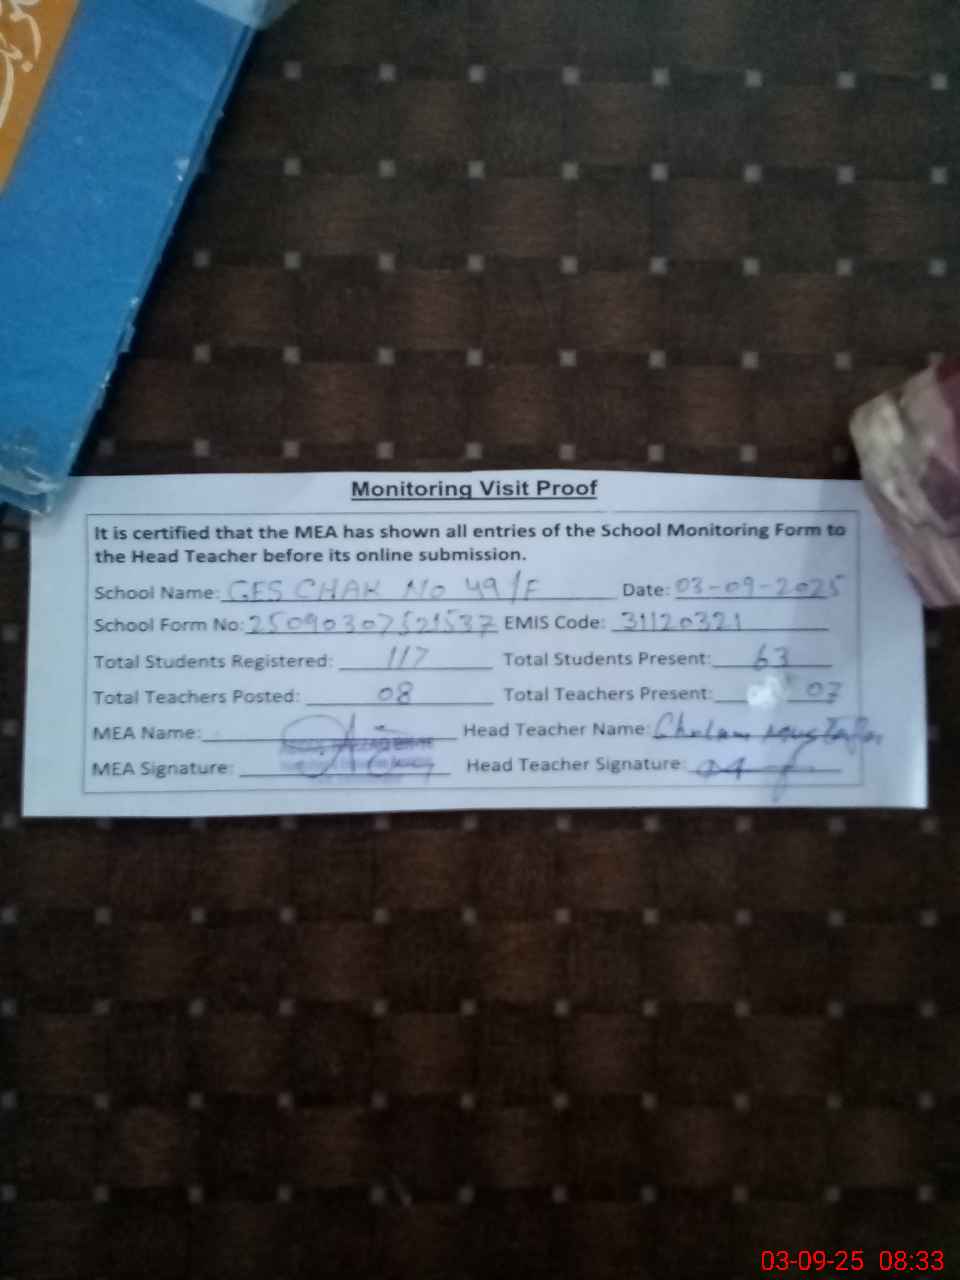 Monitoring Visit Proof
It is certified that the MEA has shown all entries of the School Monitoring Form to
the Head Teacher before its online submission.
School Name: GES CHAK No 49/F Date: 03-09-2025
School Form No: 25090307521537 EMIS Code: 31120321
Total Students Registered: 117 Total Students Present: 63
Total Teachers Posted: 08 Total Teachers Present: 07
MEA Name: Head Teacher Name: Ghulam Mustafa
MEA Signature: Head Teacher Signature:
03-09-25 08:33